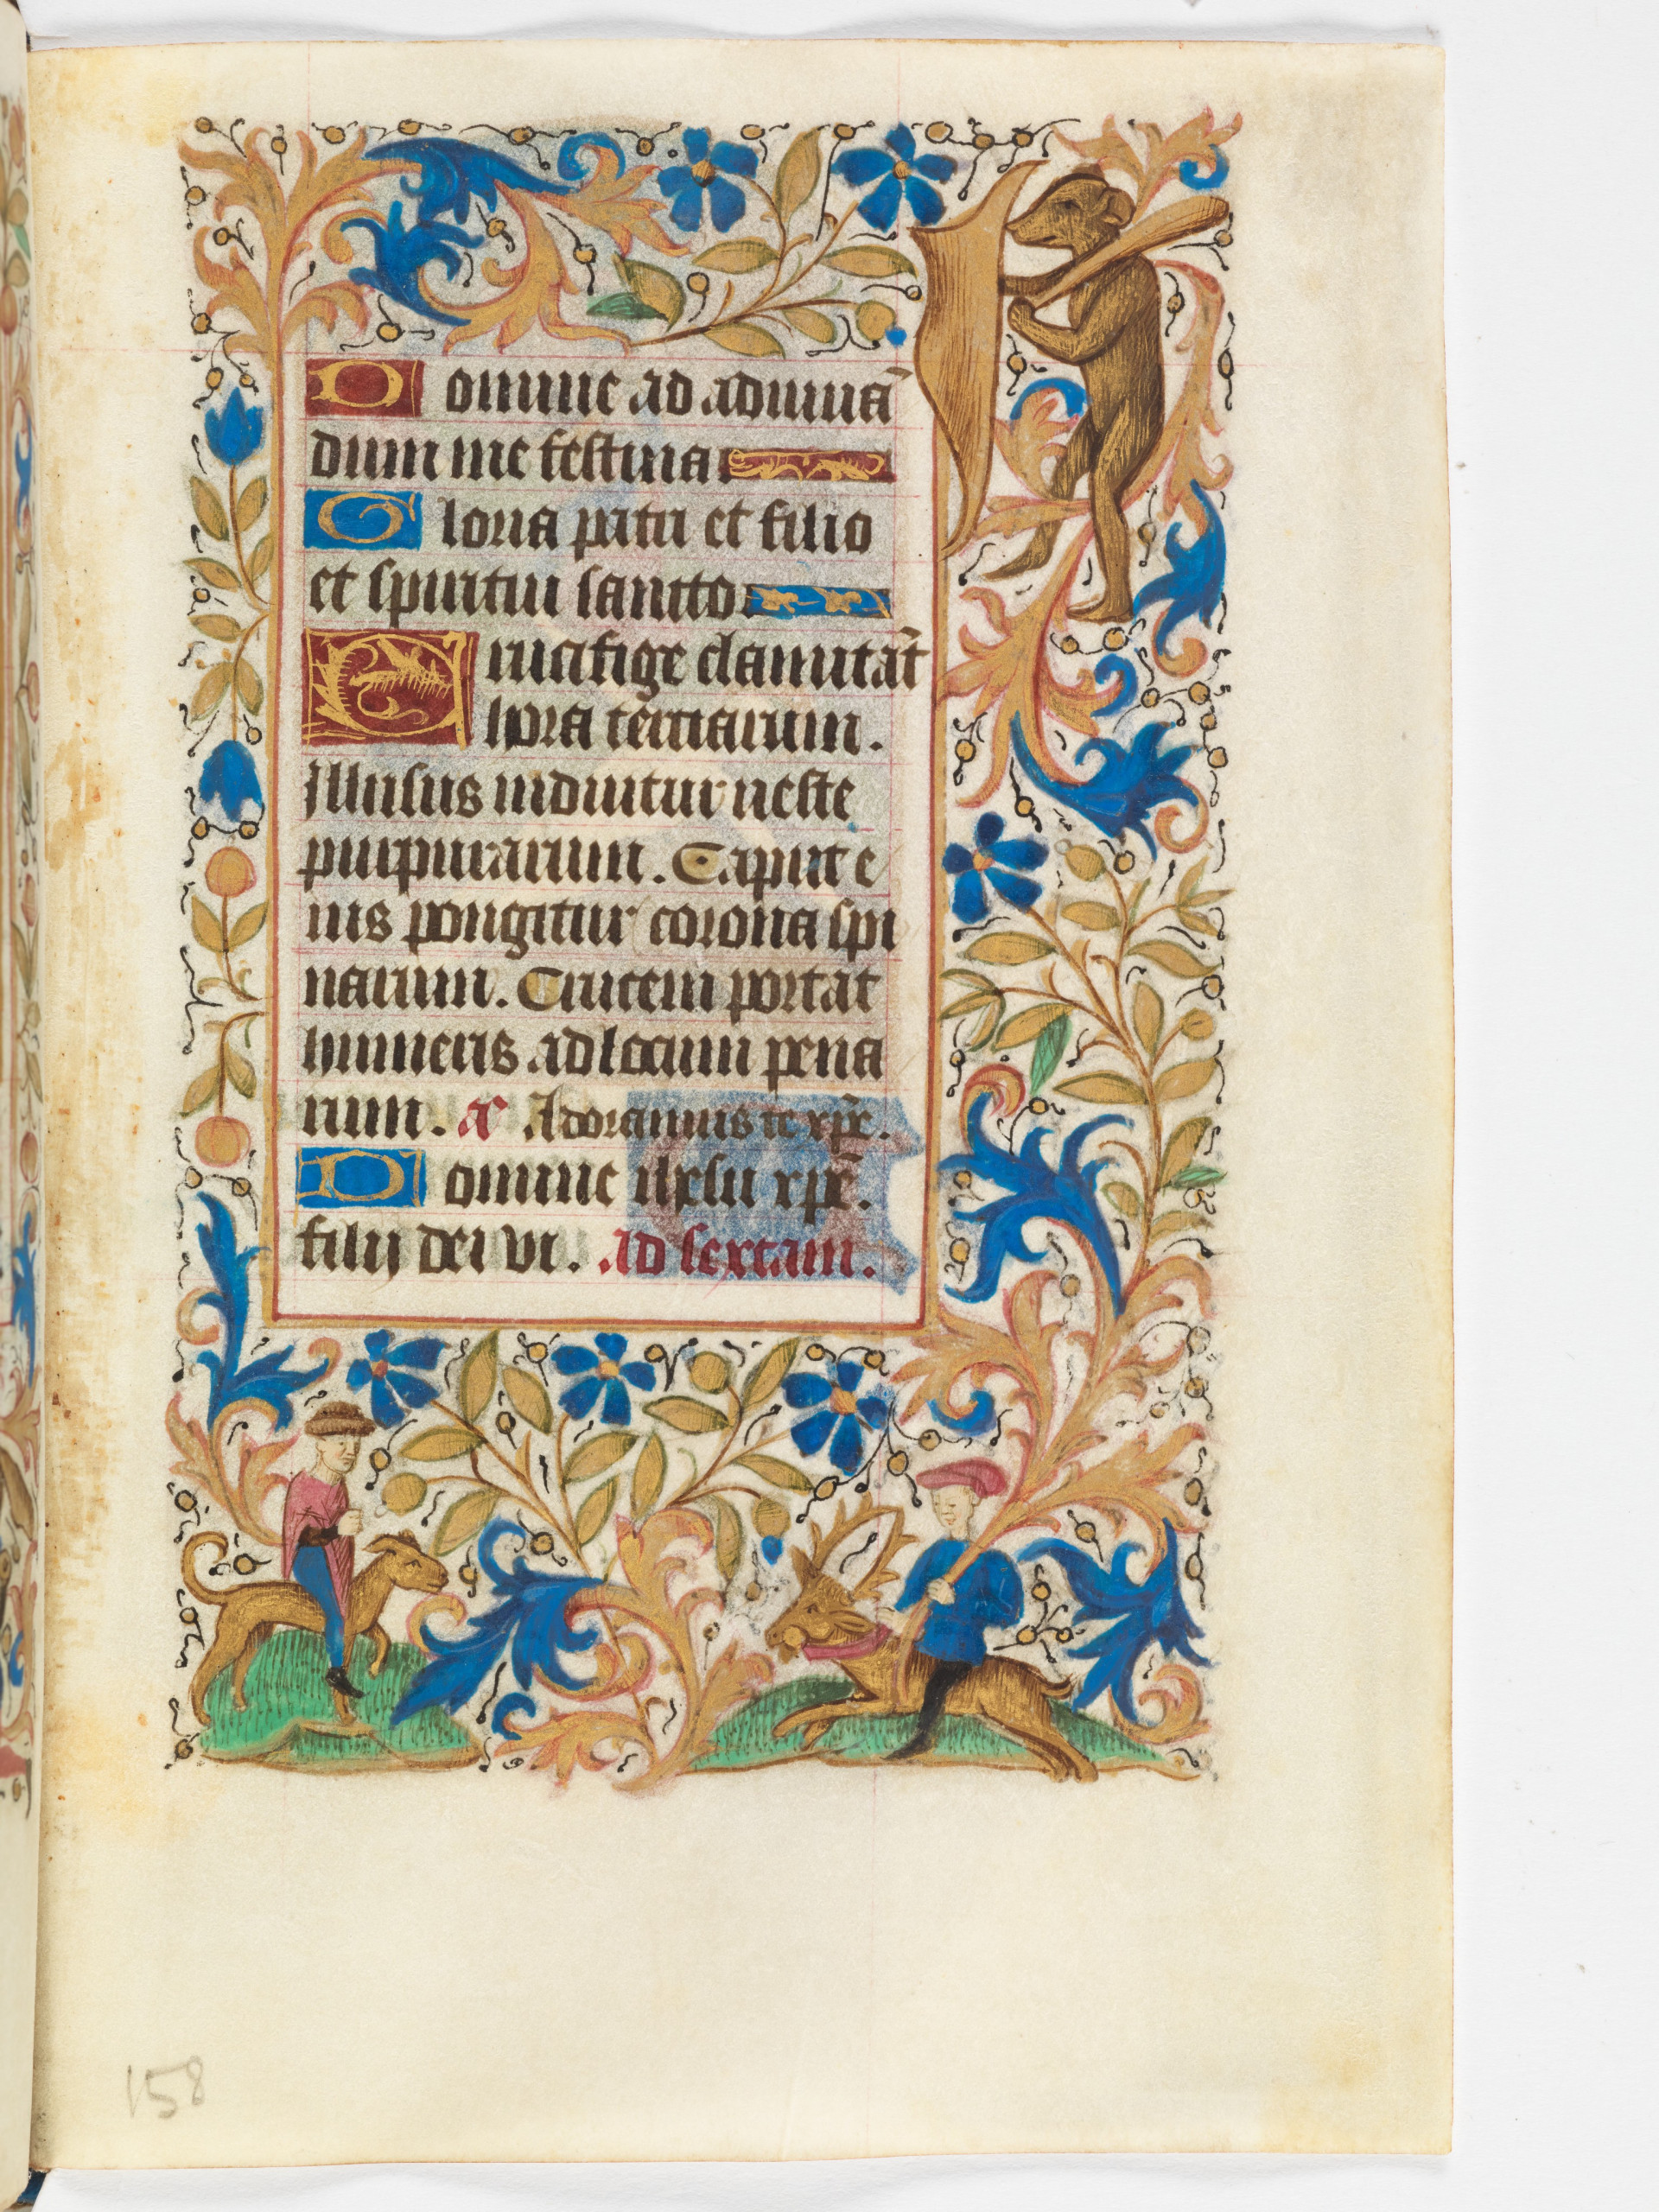 Domine ad adiuuā
dum me festina
Gloria patri et filio
et spiritui sancto
Crucifige clamitāt
hora terciarum.
Illusus induitur veste
purpurarum. Caput e
ius pongitur corona spi
narum. Crucem portat
humeris ad locum pena
rum. a Adoramus te xp̄e.
Domine ihesu xp̄e.
filij dei vi. Ad sextam.
158